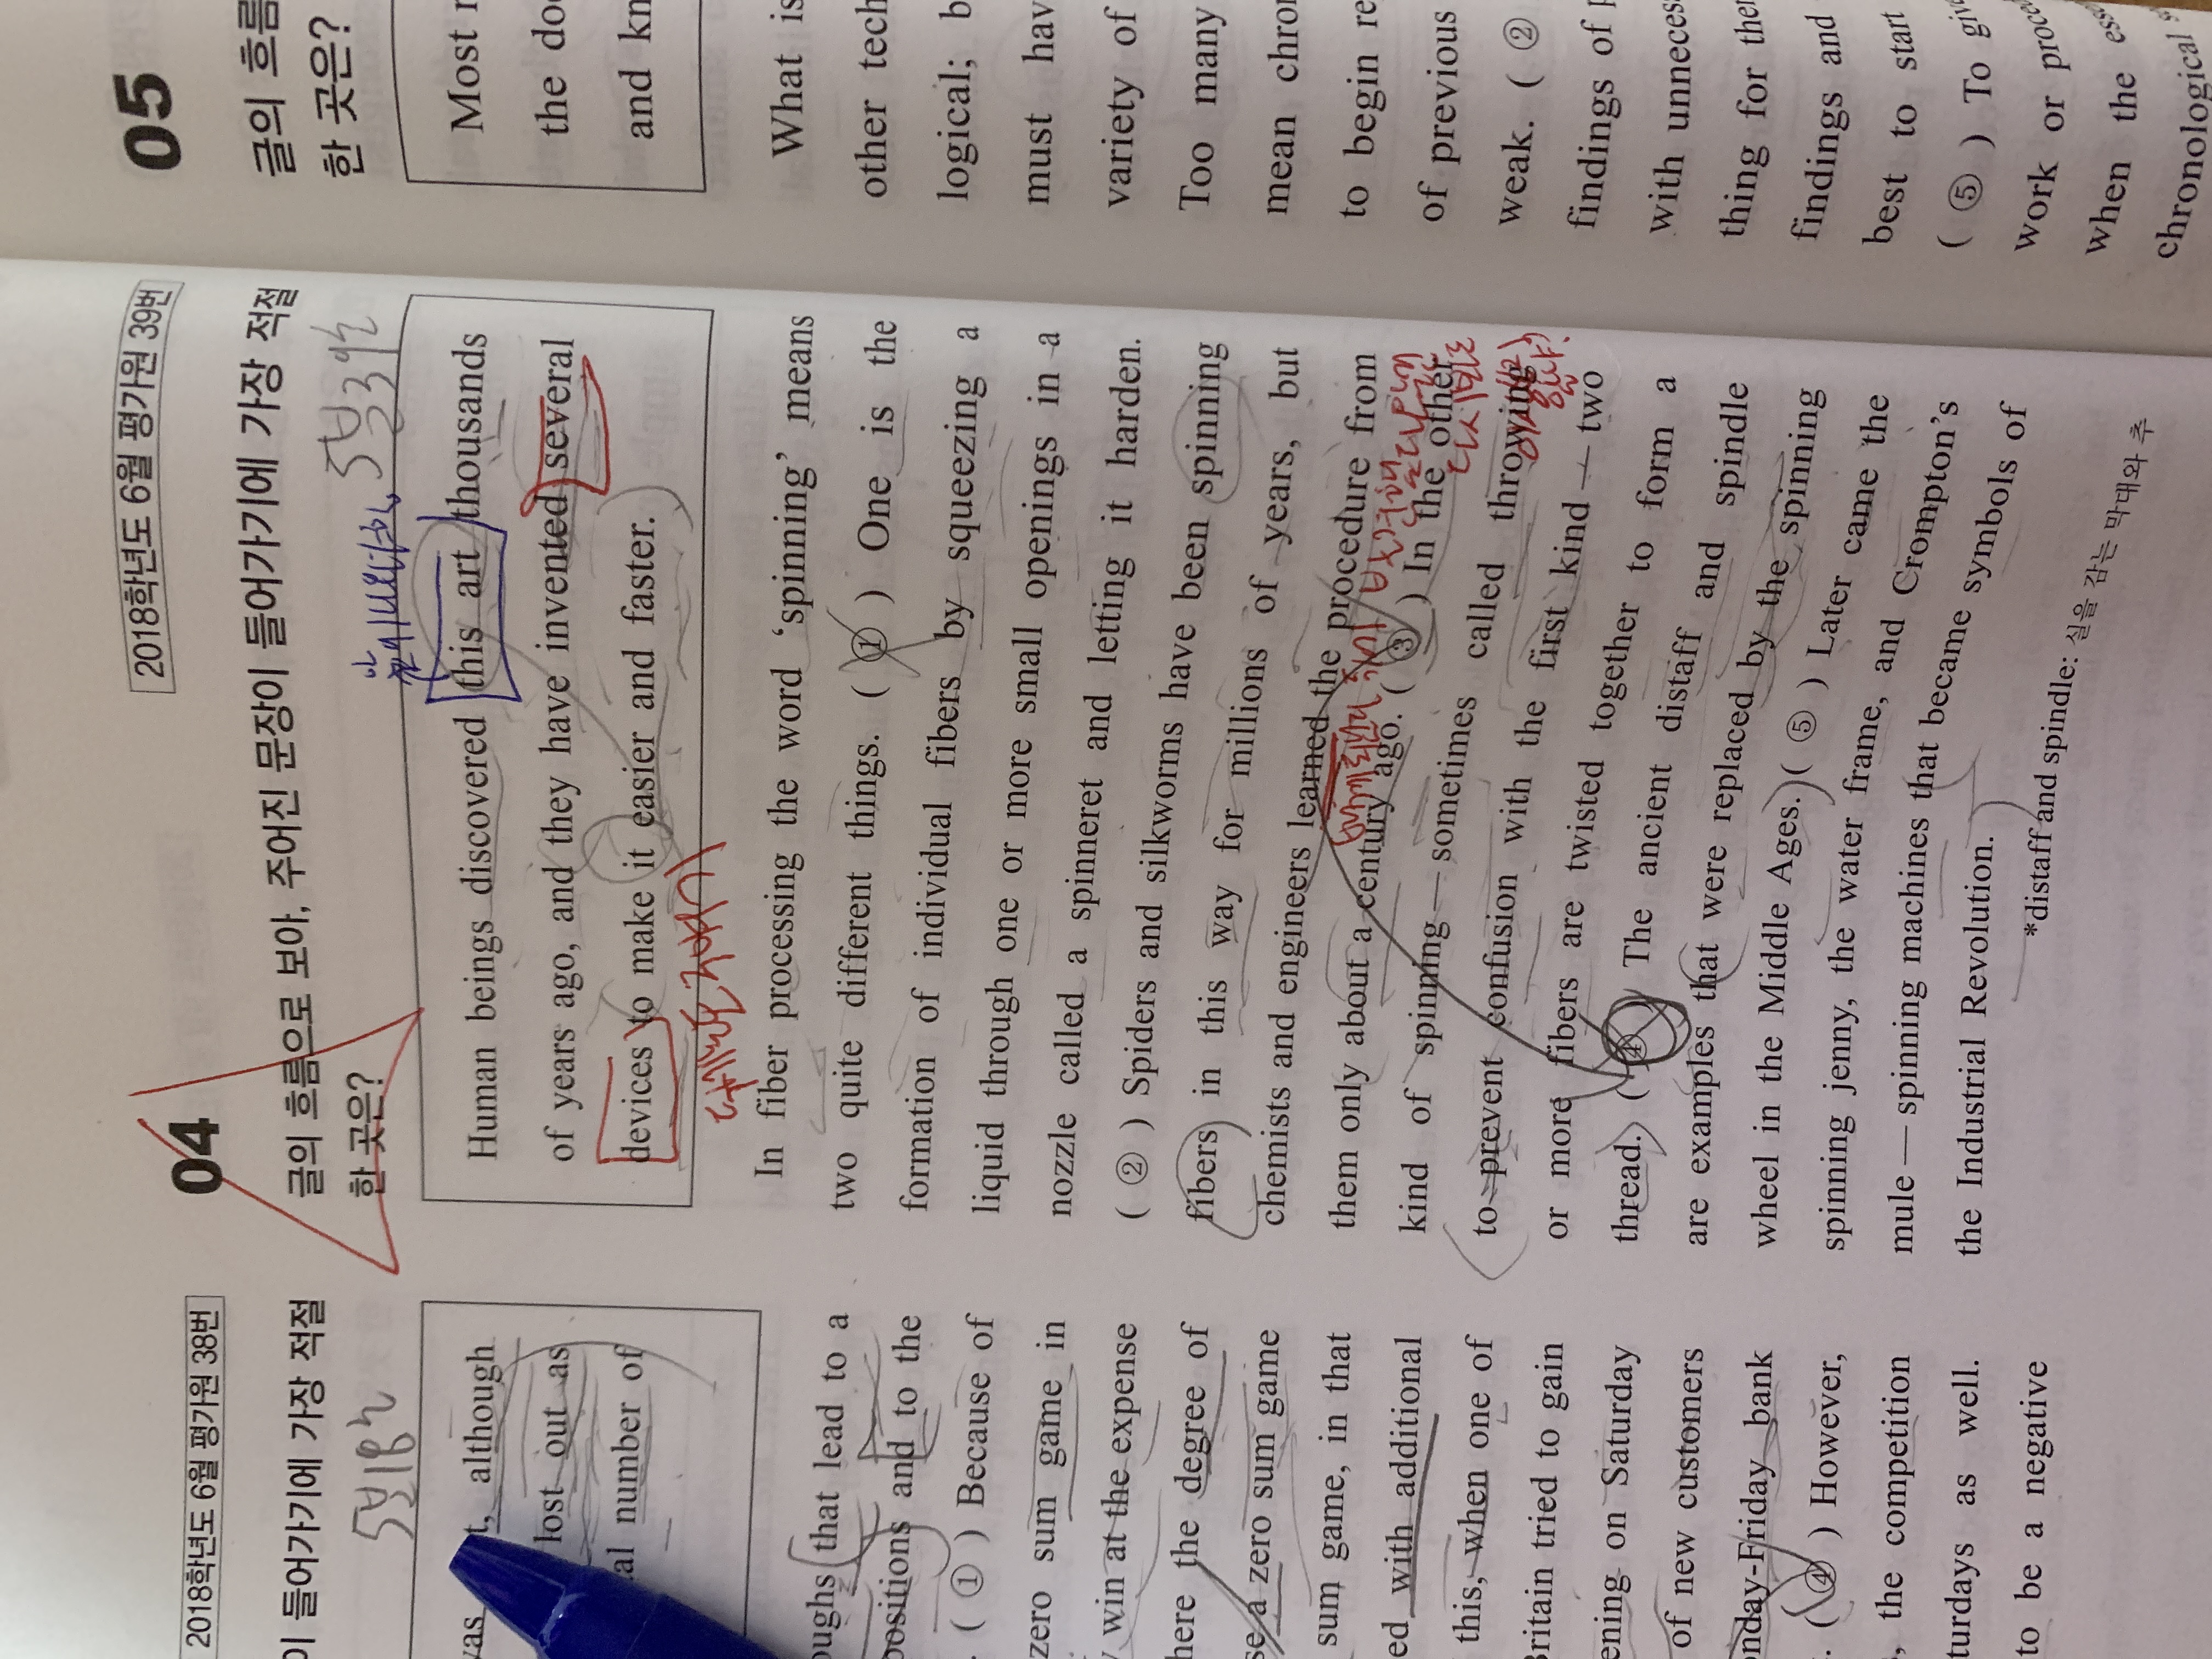 2018학년도 6월 평가원 38번
이 들어가기에 가장 적절
5분18초
t, although
lost out as
al number of
oughs that lead to a
positions and to the
( ① ) Because of
zero sum game in
win at the expense
here the degree of
se a zero sum game
sum game, in that
ed with additional
this, when one of
Britain tried to gain
ening on Saturday
of new customers
onday-Friday bank
. ( ④ ) However,
, the competition
turdays as well.
to be a negative
2018학년도 6월 평가원 39번
04
글의 흐름으로 보아, 주어진 문장이 들어가기에 가장 적절
한 곳은?
5분39초
Human beings discovered this art thousands
of years ago, and they have invented several
devices to make it easier and faster.
In fiber processing the word ‘spinning’ means
two quite different things. ( ① ) One is the
formation of individual fibers by squeezing a
liquid through one or more small openings in a
nozzle called a spinneret and letting it harden.
( ② ) Spiders and silkworms have been spinning
fibers in this way for millions of years, but
chemists and engineers learned the procedure from
them only about a century ago. ( ③ ) In the other
kind of spinning — sometimes called throwing
to prevent confusion with the first kind — two
or more fibers are twisted together to form a
thread. ( ④ ) The ancient distaff and spindle
are examples that were replaced by the spinning
wheel in the Middle Ages. ( ⑤ ) Later came the
spinning jenny, the water frame, and Crompton’s
mule — spinning machines that became symbols of
the Industrial Revolution.
*distaff and spindle: 실을 감는 막대와 추
05
글의 흐름
한 곳은?
Most
the do
and kn
What is
other tech
logical; b
must hav
variety of
Too many
mean chro
to begin re
of previous
weak. ( ②
findings of
with unneces
thing for the
findings and
best to start
( ⑤ ) To giv
work or proce
when the ess
chronological